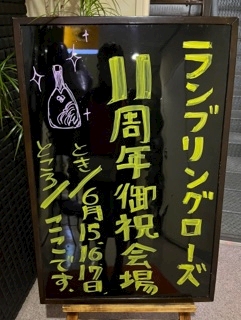 ランブリングローズ
11周年御祝会場
とき/6月15.16.17日.
ところ/ここです.